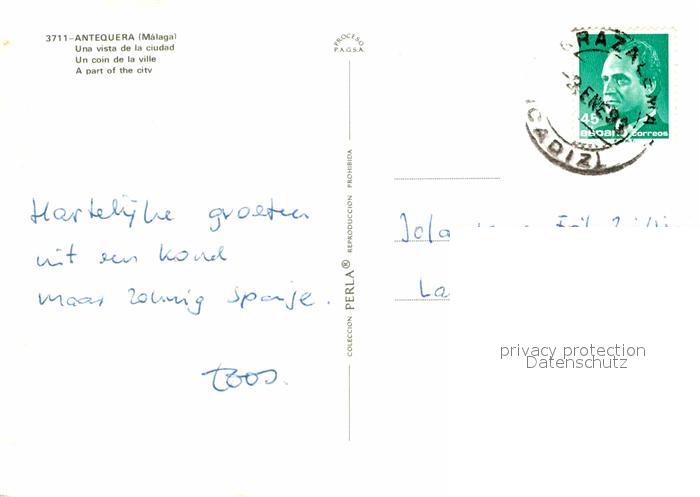 3711-ANTEQUERA (Málaga)
Una vista de la ciudad
Un coin de la ville
A part of the city
PROCESO
P.A.G.S.A.
GRAZALEMA
ENE 9
(CADIZ)
45
españa correos
Hartelijke groeten
uit een koud
maar zonnig Spanje.
Toos.
COLECCION PERLA® REPRODUCCION PROHIBIDA
Jola
La
privacy protection
Datenschutz